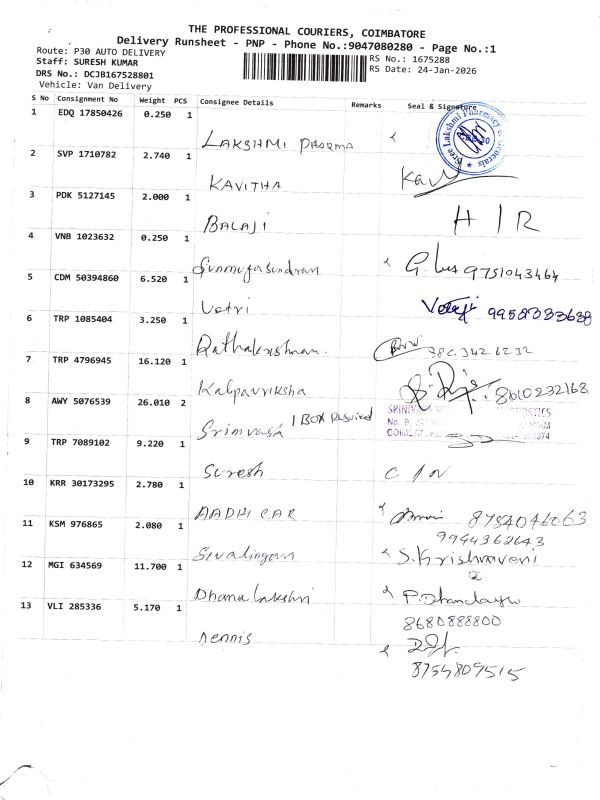 THE PROFESSIONAL COURIERS, COIMBATORE
Delivery Runsheet - PNP - Phone No.:9047080280 - Page No.:1
Route: P30 AUTO DELIVERY
RS No.: 1675288
Staff: SURESH KUMAR
RS Date: 24-Jan-2026
DRS No.: DCJB167528801
Vehicle: Van Delivery
S No Consignment No Weight PCS Consignee Details Remarks Seal & Signature
1 EDQ 17850426 0.250 1
LAKSHMI PHARMA
Sree Lakshmi Pharmacy & Generals
2 SVP 1710782 2.740 1
KAVITHA
3 PDK 5127145 2.000 1
BALAJI H/R
4 VNB 1023632 0.250 1
Sunmugasundram 9751043464
5 CDM 50394860 6.520 1
Vetri
6 TRP 1085404 3.250 1
Rathakrishnan.
7 TRP 4796945 16.120 1
Kalpavriksha 8610232168
8 AWY 5076539 26.010 2
Srinivasa 1 BOX Received
9 TRP 7089102 9.220 1
Suresh C/N
10 KRR 30173295 2.780 1
AADHI CAR
9944362643
11 KSM 976865 2.080 1
Sivalingam S.Krishnaveni
12 MGI 634569 11.700 1
Dhanalakshmi
8680888800
13 VLI 285336 5.170 1
Dennis
8754809515